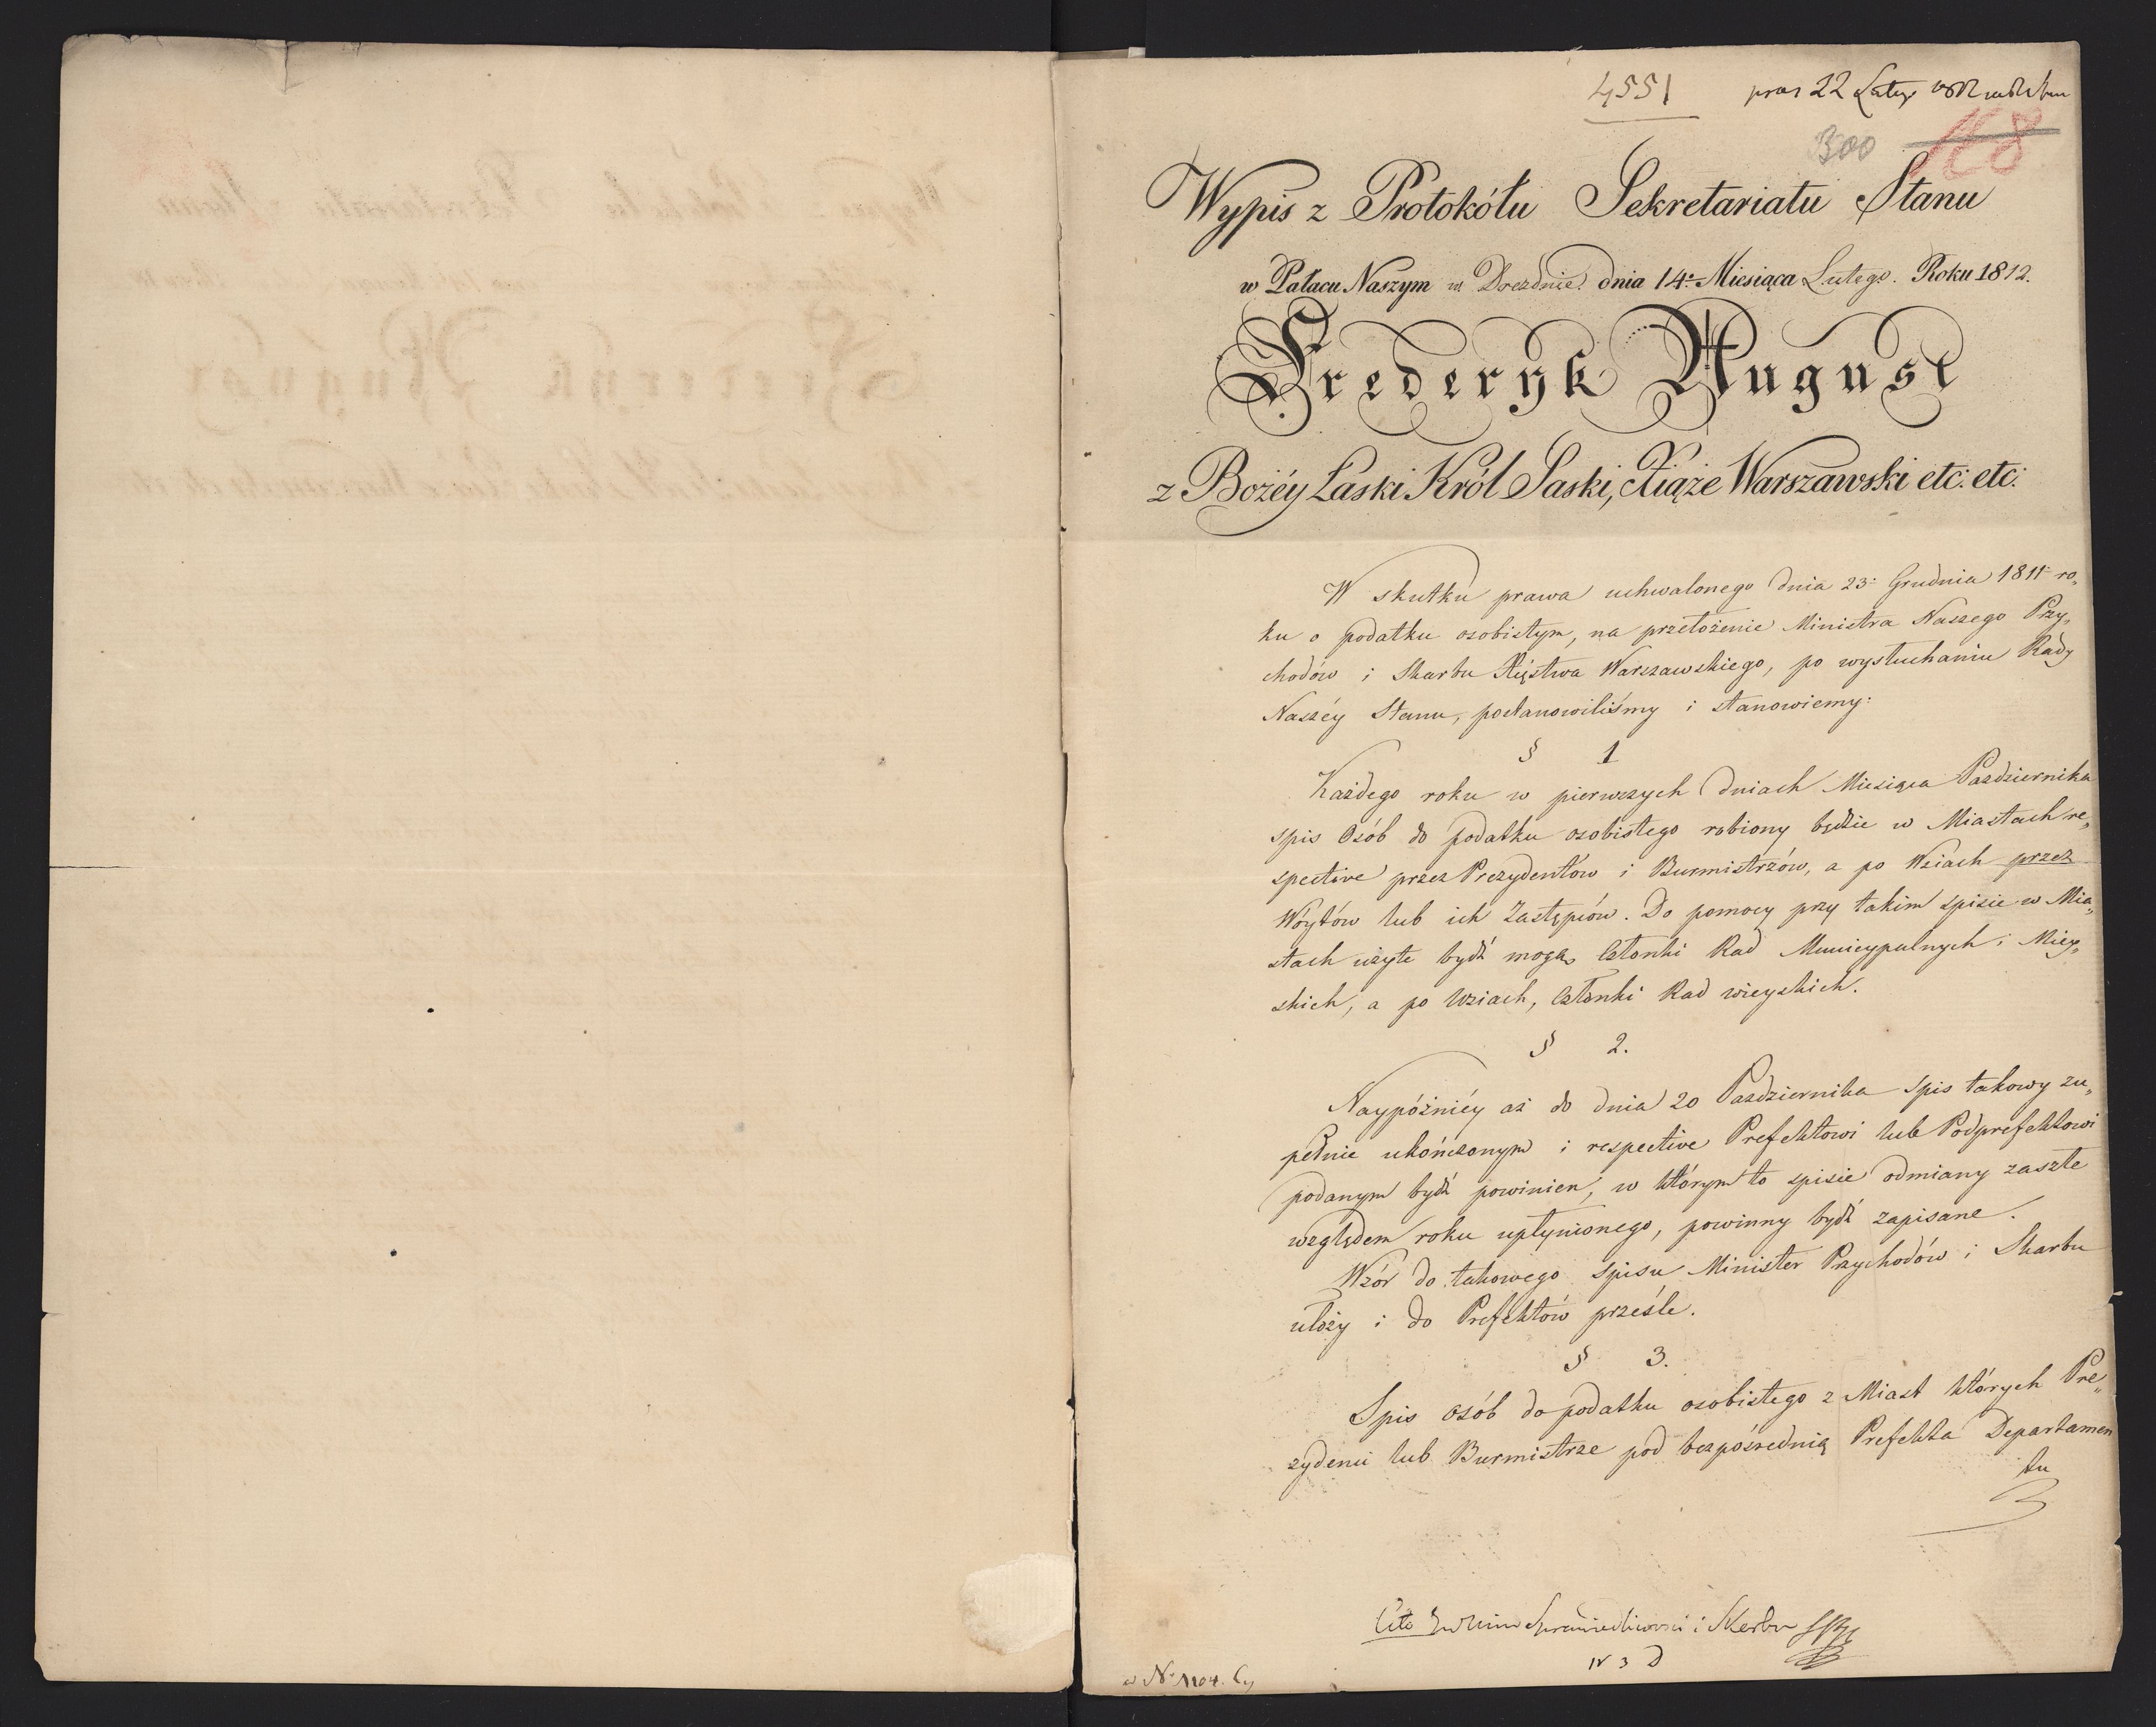 4551
22
300
168
Wypis z Protokółu Sekretariatu Stanu
w Pałacu Naszym w Dreznie. dnia 14º Miesiąca Lutego. Roku 1812.
Frederyk August
z Bożéy Łaski Król Saski, Xiąże Warszawski etc: etc:
W skutku prawa uchwalonego dnia 23: Grudnia 1811 ro„
ku o podatku osobistym, na przełożenie Ministra Naszego Przy„
chodów i Skarbu Xięstwa Warszawskiego, po wysłuchaniu Rady
Naszéy Stanu, postanowiliśmy i stanowiemy:
§ 1
Każdego roku w pierwszych dniach Miesiąca Pazdziernika
spis Osób do podatku osobistego robiony będzie w Miastach re„
spective przez Prezydentów i Burmistrzów, a po Wsiach przez
Wóytów lub ich Zastępców. Do pomocy przy takim spisie w Mia„
stach użyte bydź mogą Członki Rad Municypalnych i Miey„
skich, a po Wsiach, Członki Rad wieyskich.
§ 2.
Naypóźniéy aż do dnia 20 Pazdziernika spis takowy zu„
pełnie ukończonym i respective Prefektowi lub Podprefektowi
podanym bydź powinien, w którym to spisie odmiany zaszłe
względem roku upłynionego, powinny bydź zapisane.
Wzór do takowego spisu Minister Przychodów i Skarbu
ułoży i do Prefektów prześle.
§ 3.
Spis osób do podatku osobistego z Miast których Pre„
zydenci lub Burmistrze pod bezpośrednią Prefekta Departamen
tu
Cito Sprawiedliwości i Skarbu
w Nº 1104.